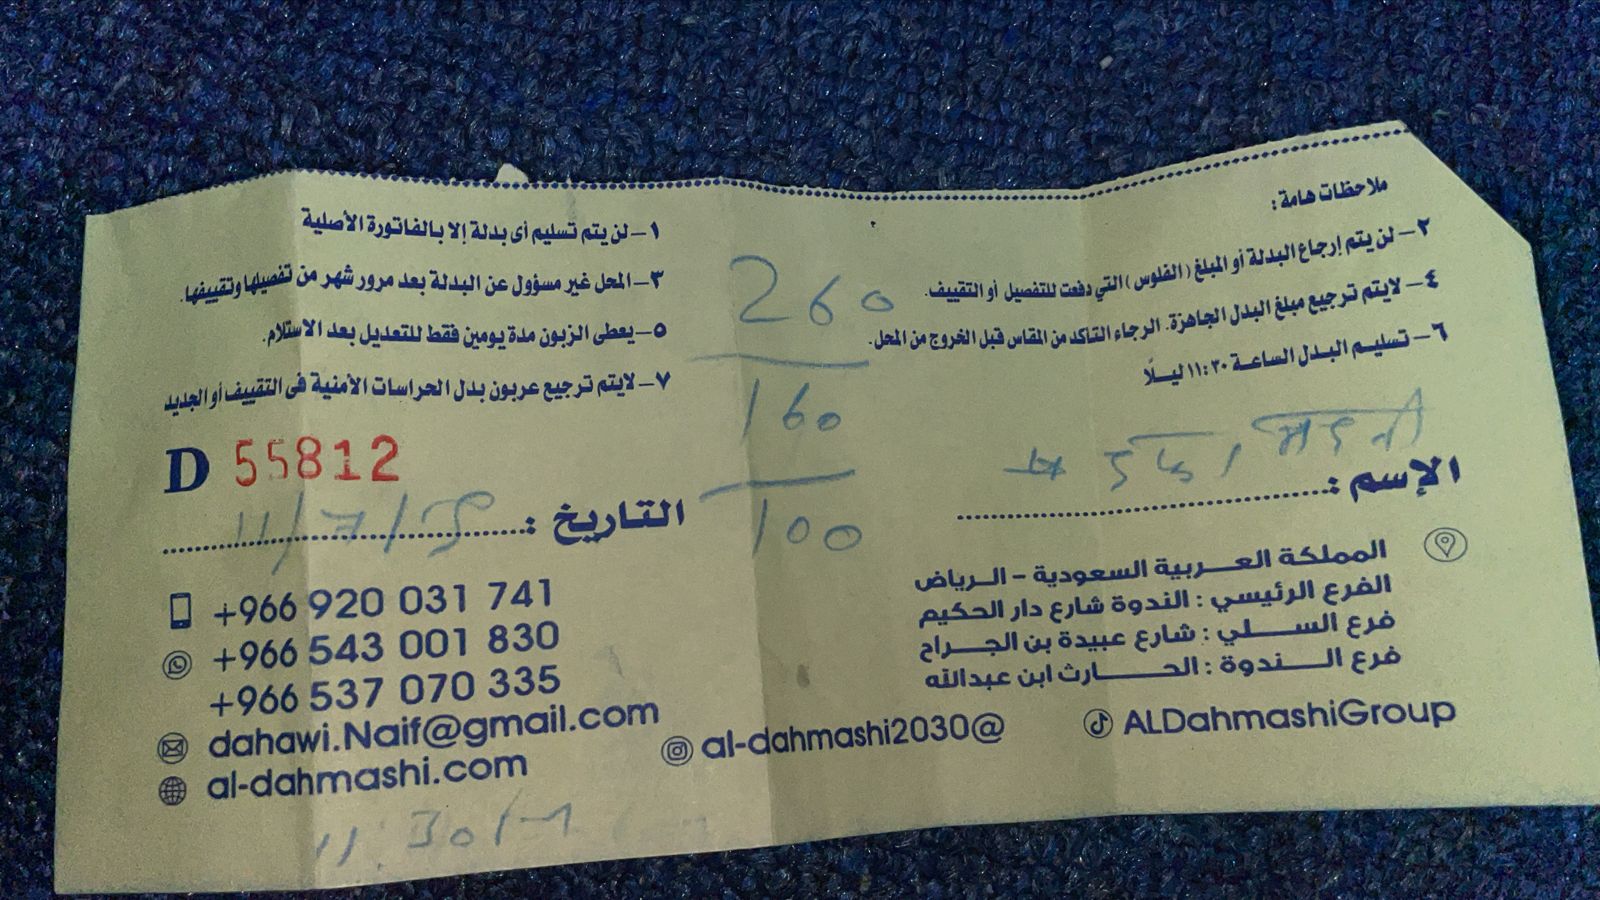 ملاحظات هامة :
١- لن يتم تسليم أى بدلة إلا بالفاتورة الأصلية
٢- لن يتم إرجاع البدلة أو المبلغ ( الفلوس ) التي دفعت للتفصيل أو التقييف.
٣- المحل غير مسؤول عن البدلة بعد مرور شهر من تفصيلها وتقييفها.
٤- لايتم ترجيع مبلغ البدل الجاهزة. الرجاء التأكد من المقاس قبل الخروج من المحل.
٥- يعطى الزبون مدة يومين فقط للتعديل بعد الاستلام.
٦- تسليم البدل الساعة ١١:٣٠ ليلًا
٧- لايتم ترجيع عربون بدل الحراسات الأمنية فى التقييف أو الجديد
260
160
100
D 55812
الإسم :
التاريخ : 11/7/
المملكة العربية السعودية - الرياض
الفرع الرئيسي : الندوة شارع دار الحكيم
فرع السلي : شارع عبيدة بن الجراح
فرع الندوة : الحارث ابن عبدالله
+966 920 031 741
+966 543 001 830
+966 537 070 335
dahawi.Naif@gmail.com
al-dahmashi.com
al-dahmashi2030@
ALDahmashiGroup
11:30